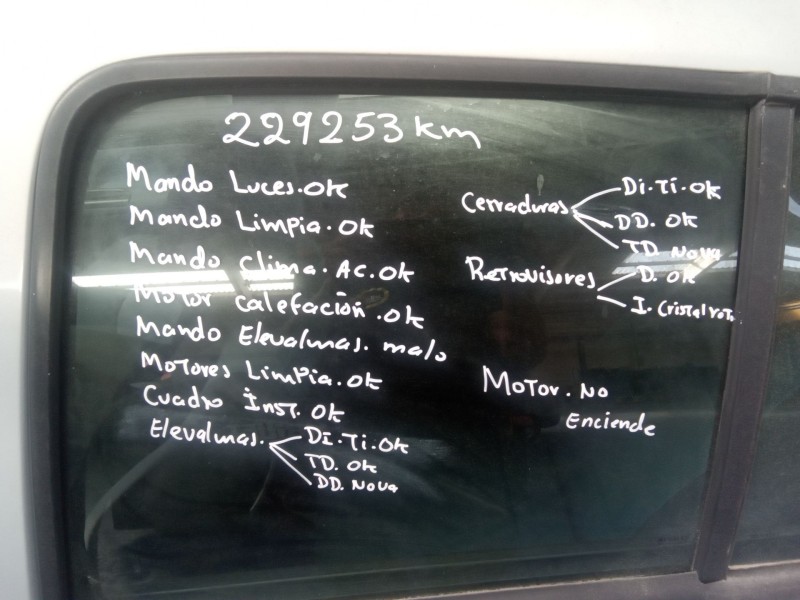 229253 km
Mando Luces.OK
Mando Limpia.OK
Mando clima. AC.OK
Motor calefación.OK
Mando Elevalunas. malo
Motores Limpia.OK
Cuadro Inst. OK
Elevalunas.
DI.TI.OK
TD. OK
DD. Nova
Cerraduras
Di.Ti.OK
DD. OK
TD. Nova
Retrovisores
D. OK
I. Cristal roto.
Motor. No
Enciende